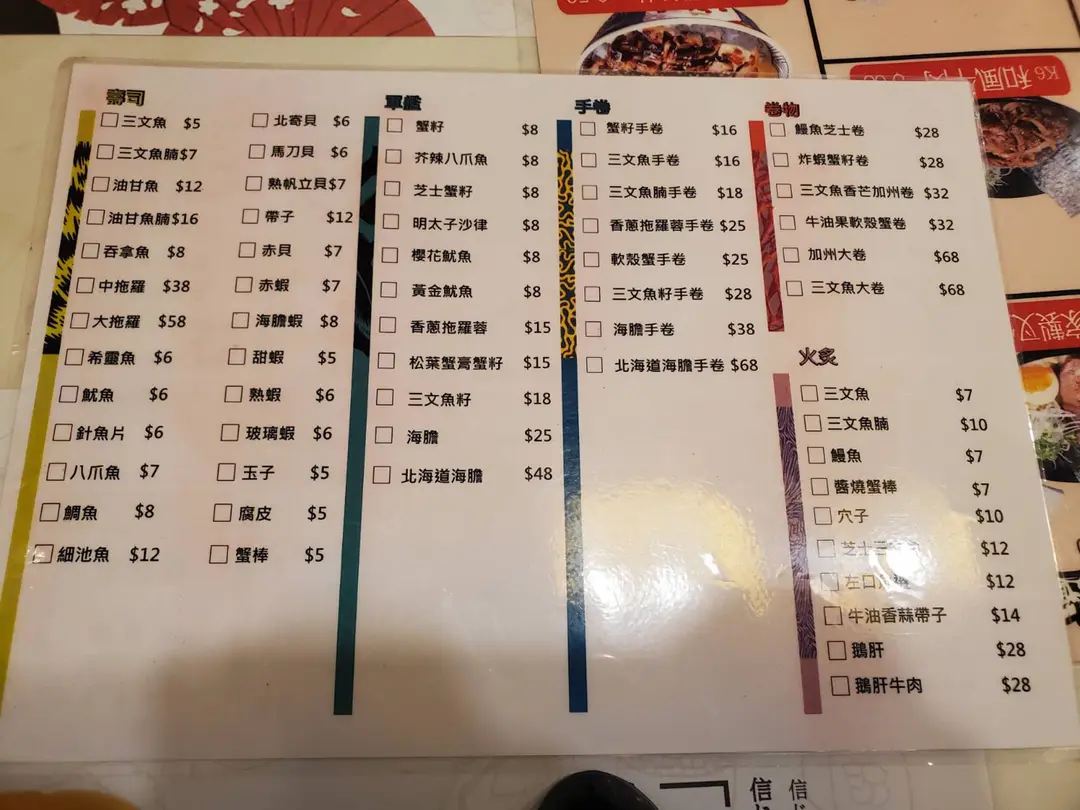 壽司
三文魚 $5
三文魚腩$7
油甘魚 $12
油甘魚腩$16
吞拿魚 $8
中拖羅 $38
大拖羅 $58
希靈魚 $6
魷魚 $6
針魚片 $6
八爪魚 $7
鯛魚 $8
細池魚 $12
北寄貝 $6
馬刀貝 $6
熟帆立貝$7
帶子 $12
赤貝 $7
赤蝦 $7
海膽蝦 $8
甜蝦 $5
熟蝦 $6
玻璃蝦 $6
玉子 $5
腐皮 $5
蟹棒 $5
軍艦
蟹籽 $8
芥辣八爪魚 $8
芝士蟹籽 $8
明太子沙律 $8
櫻花魷魚 $8
黃金魷魚 $8
香蔥拖羅蓉 $15
松葉蟹膏蟹籽 $15
三文魚籽 $18
海膽 $25
北海道海膽 $48
手卷
蟹籽手卷 $16
三文魚手卷 $16
三文魚腩手卷 $18
香蔥拖羅蓉手卷 $25
軟殼蟹手卷 $25
三文魚籽手卷 $28
海膽手卷 $38
北海道海膽手卷 $68
卷物
鰻魚芝士卷 $28
炸蝦蟹籽卷 $28
三文魚香芒加州卷 $32
牛油果軟殼蟹卷 $32
加州大卷 $68
三文魚大卷 $68
火炙
三文魚 $7
三文魚腩 $10
鰻魚 $7
醬燒蟹棒 $7
穴子 $10
芝士三 $12
左口 $12
牛油香蒜帶子 $14
鵝肝 $28
鵝肝牛肉 $28
K6 和風牛肉
家製叉
信
信